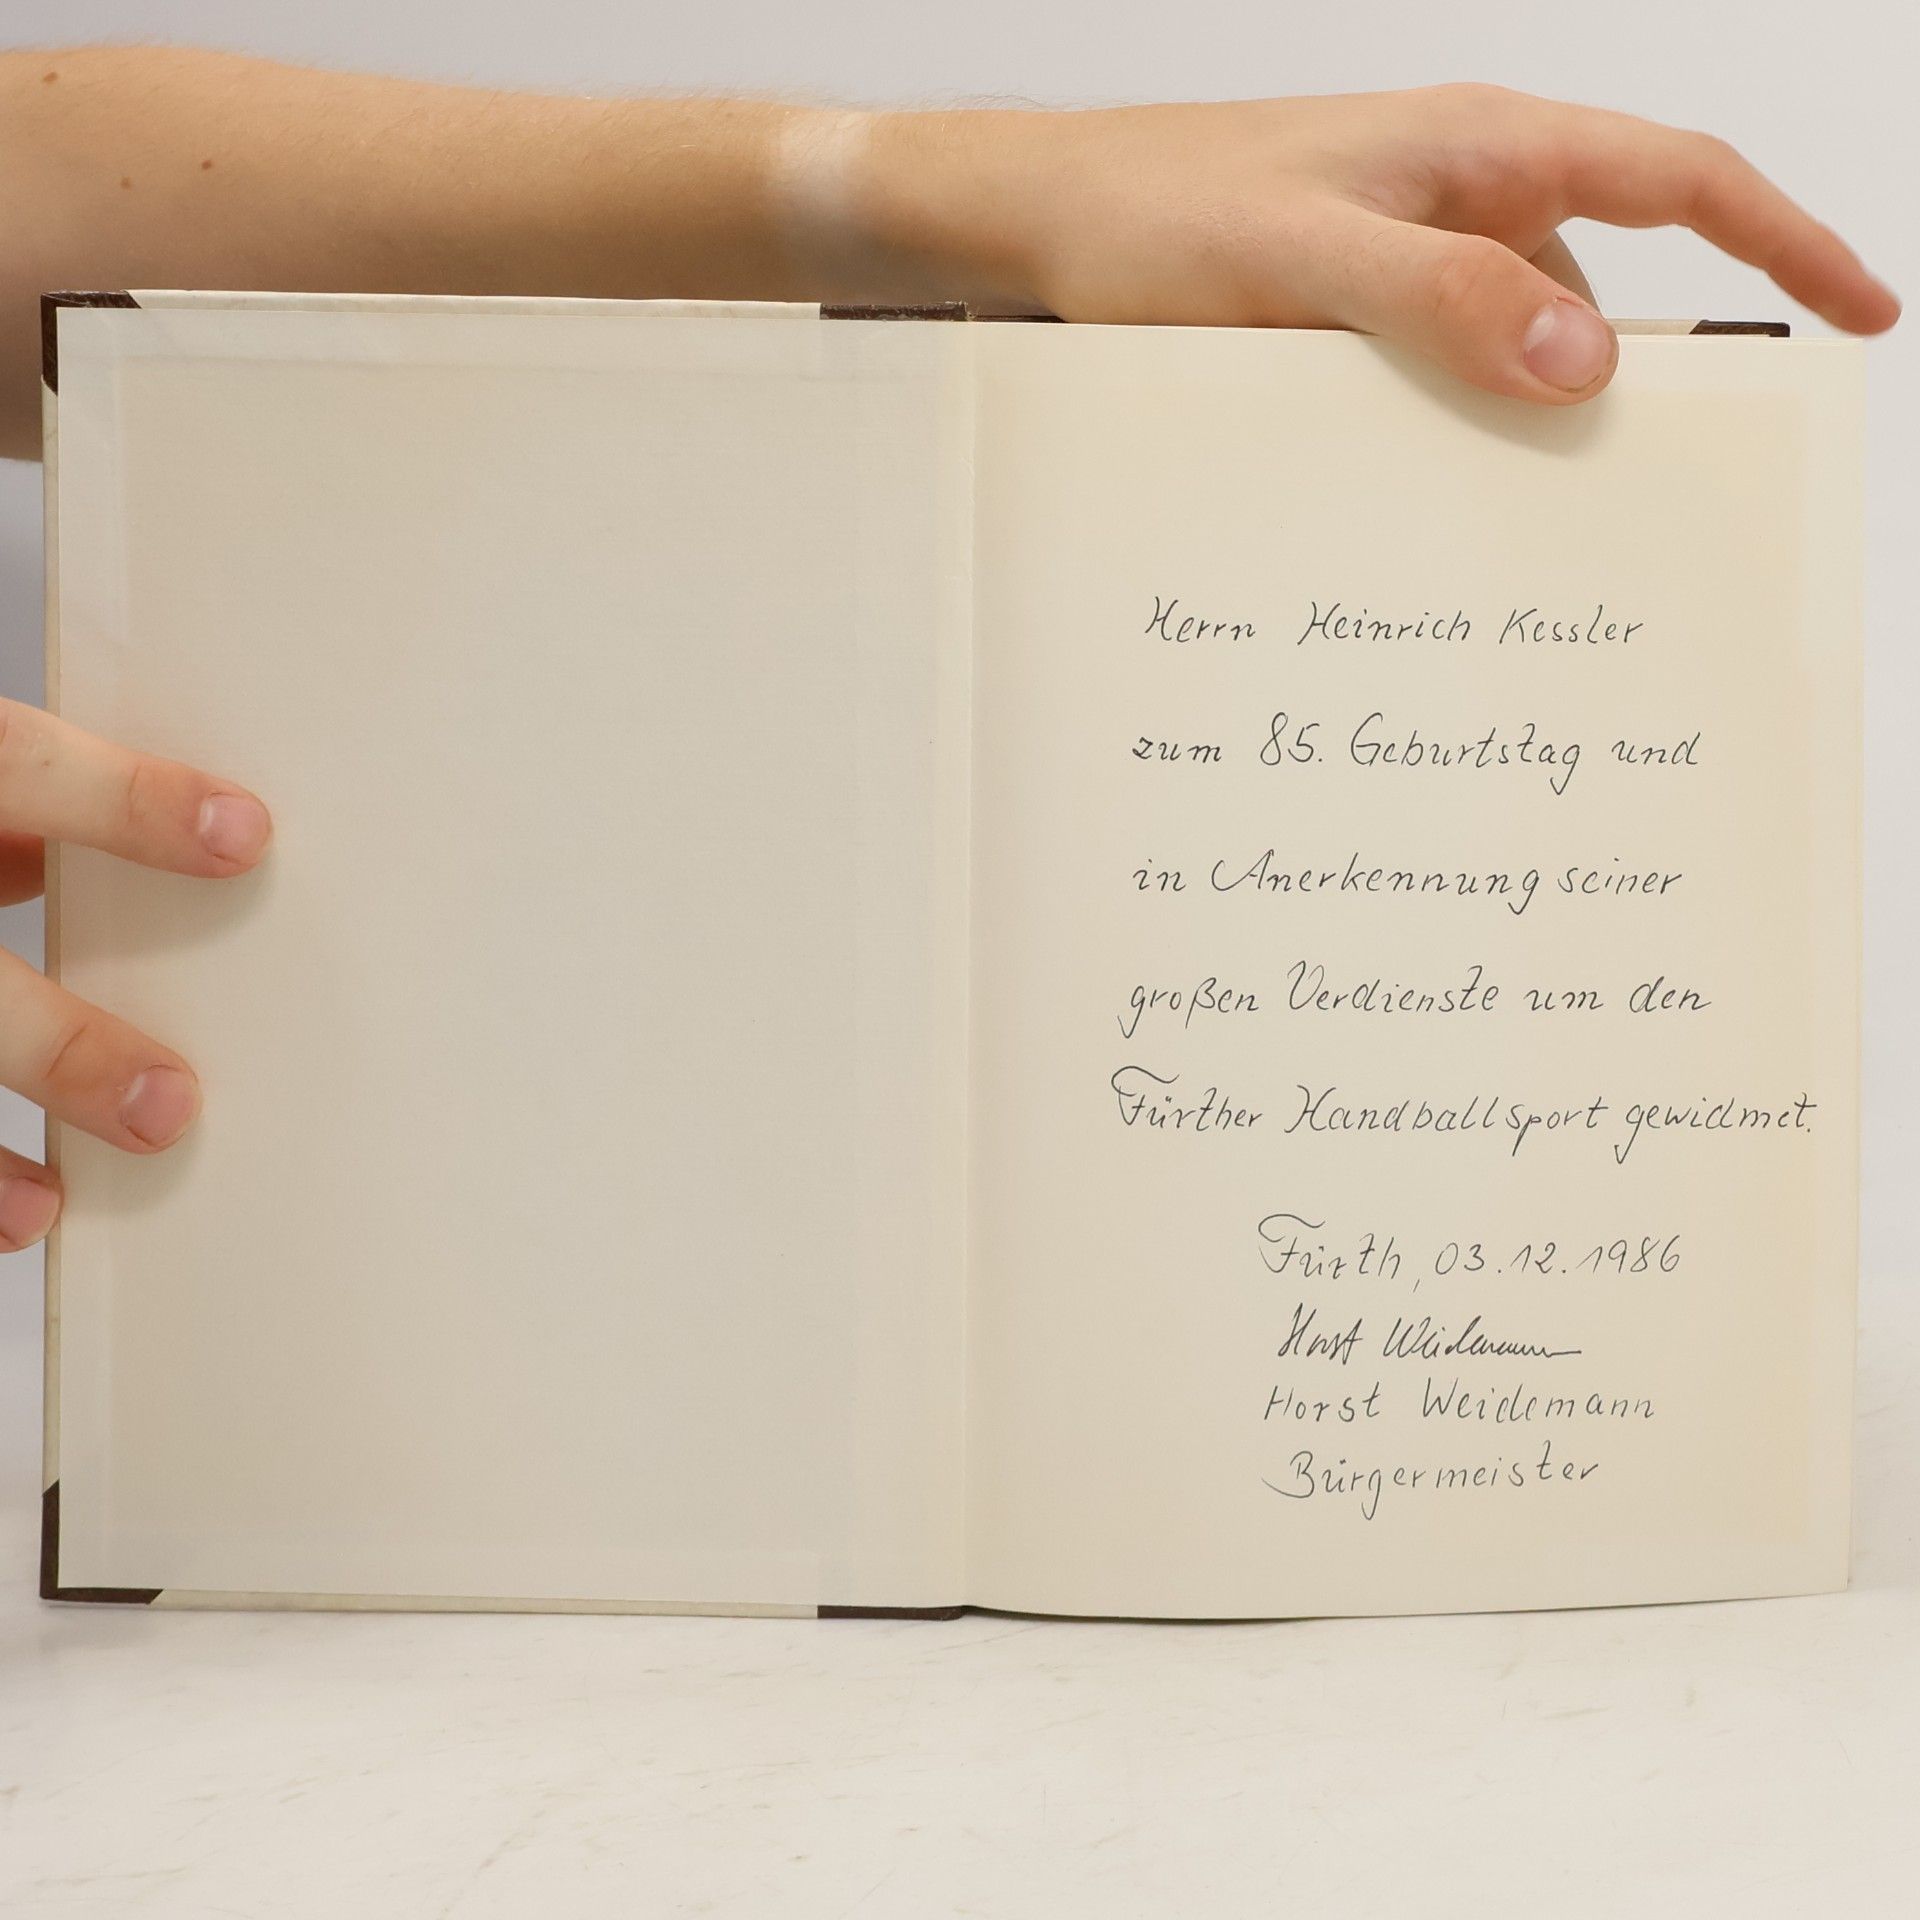 Herrn Heinrich Kessler
zum 85. Geburtstag und
in Anerkennung seiner
großen Verdienste um den
Fürther Handballsport gewidmet.
Fürth, 03.12.1986
Horst Weidemann
Horst Weidemann
Bürgermeister